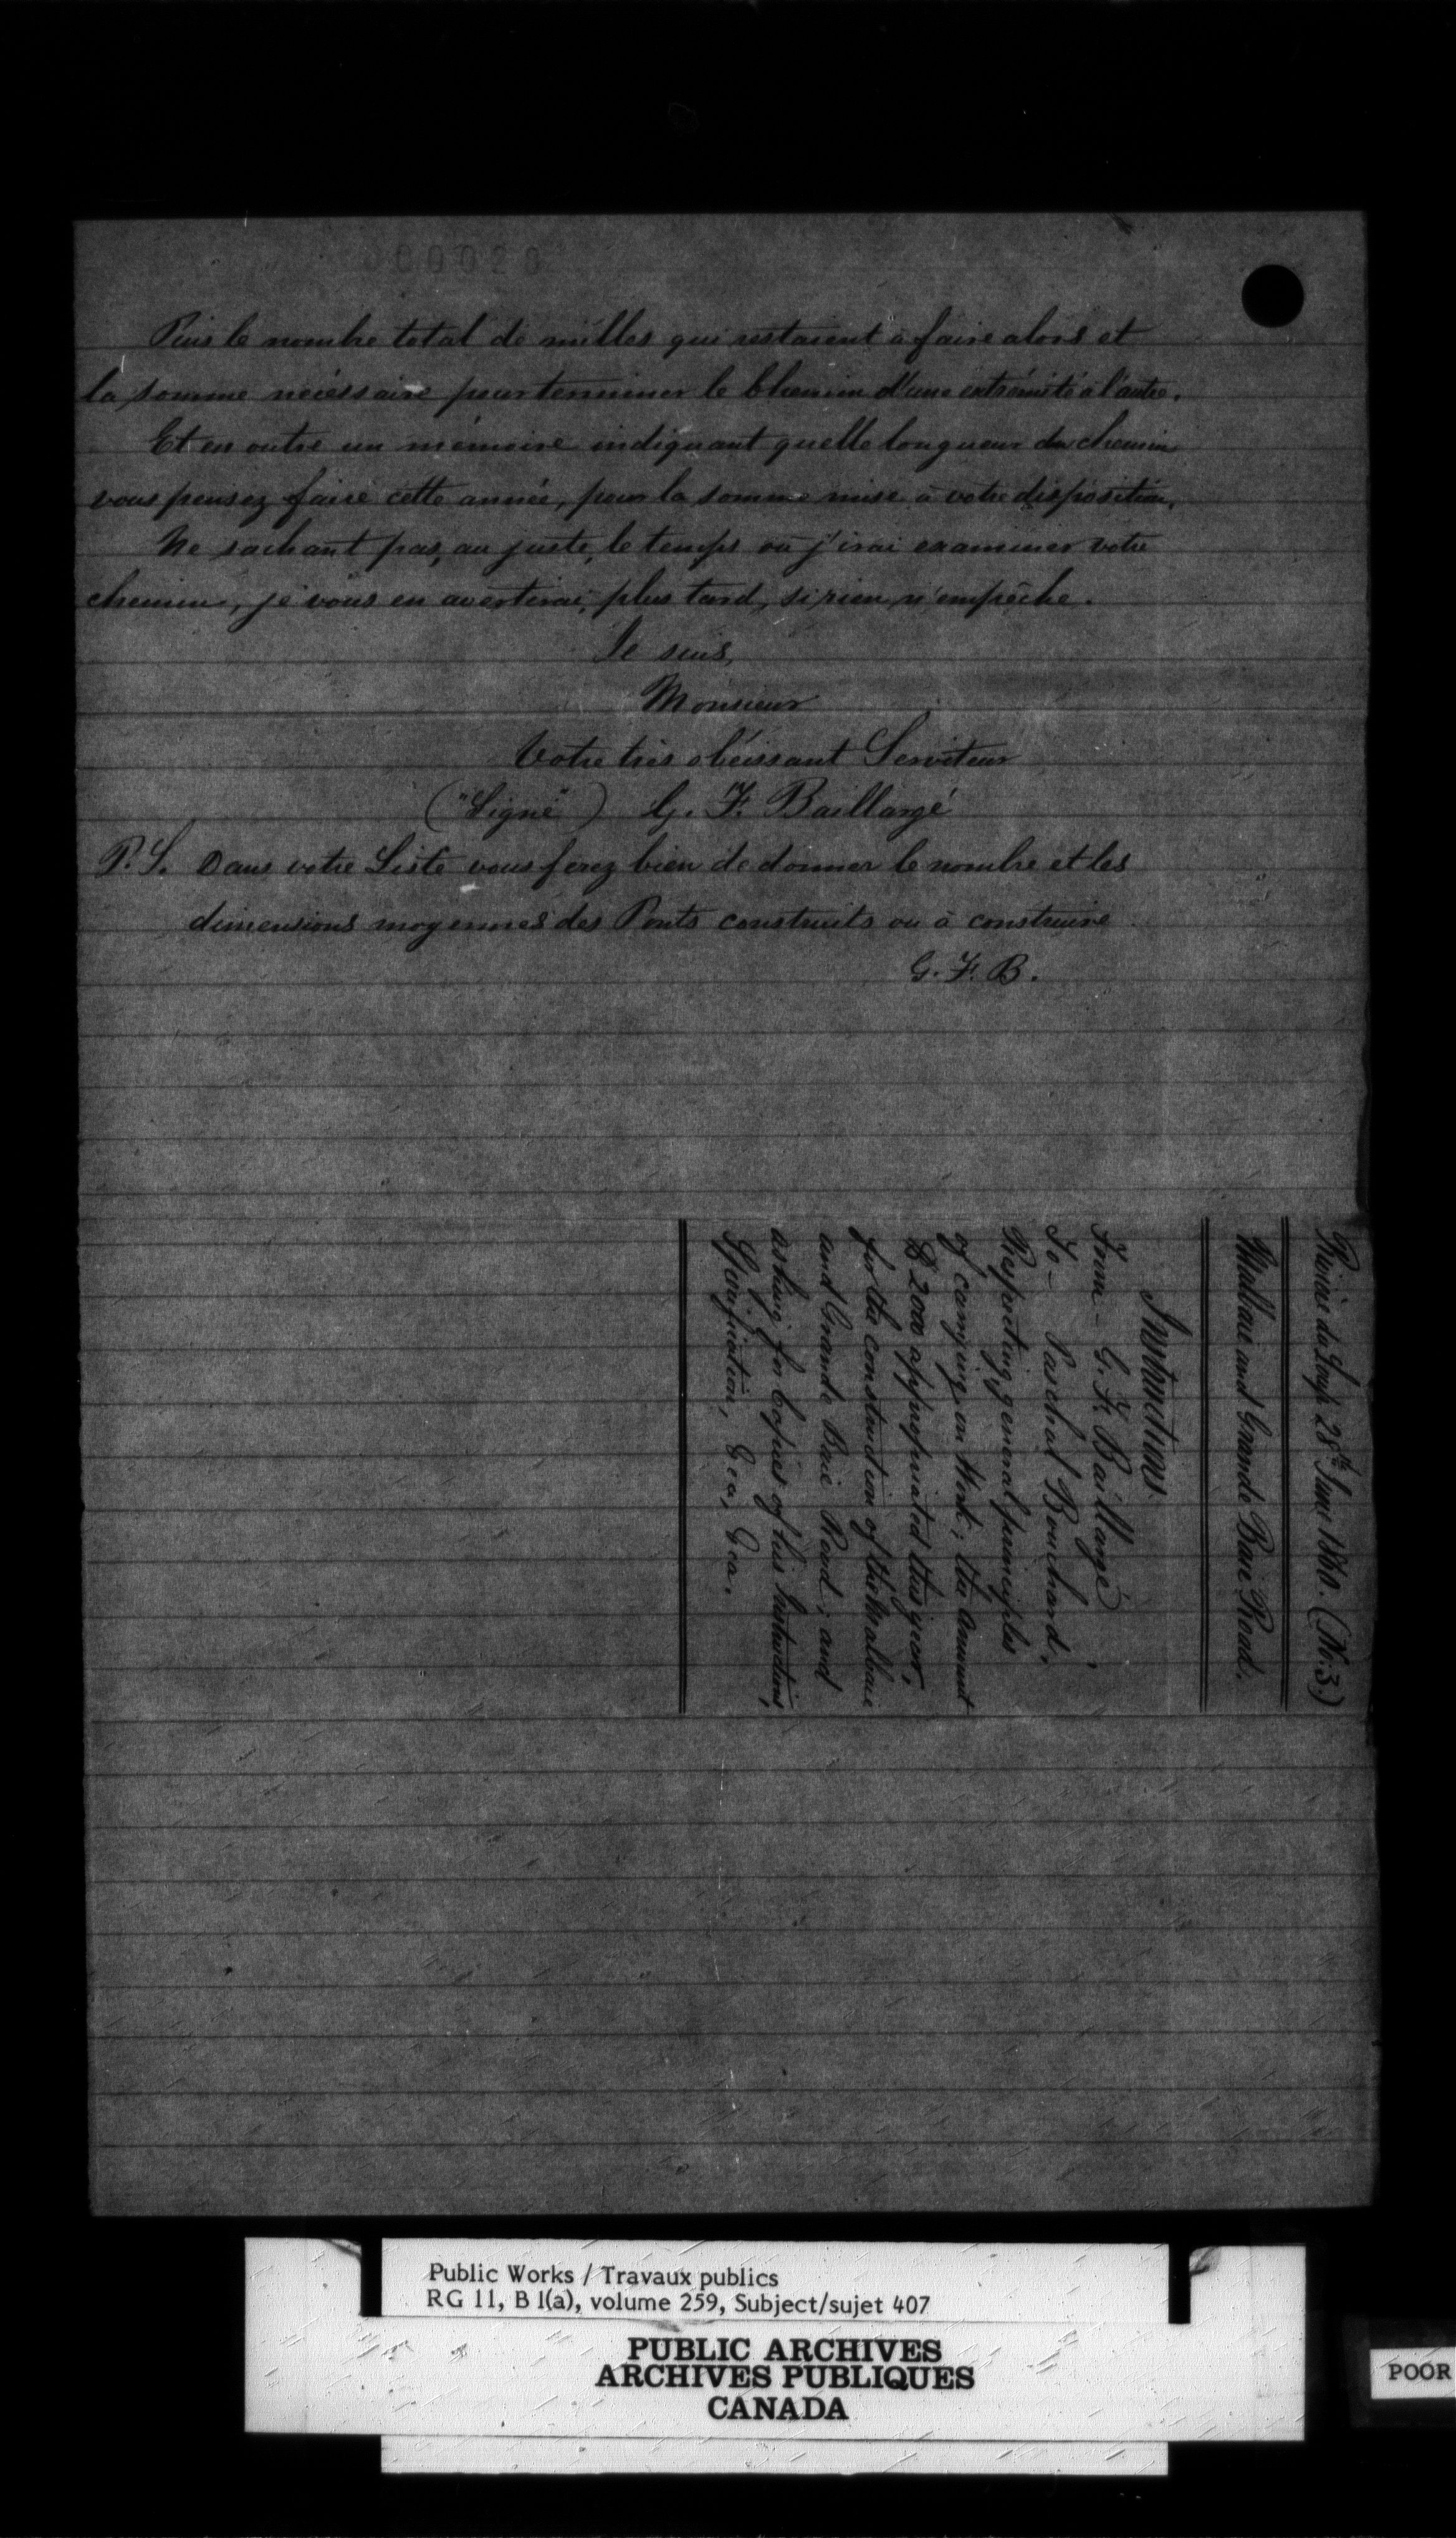 000020
Puis le nombre total de milles qui restaient à faire alors et
la somme nécessaire pour terminer le Chemin d'une extrémité à l'autre.
Et en outre un mémoire indiquant quelle longueur du chemin
vous pensez faire cette année, pour la somme mise à votre disposition.
Ne sachant pas, au juste, le temps où j'irai examiner votre
chemin, je vous en avertirai, plus tard, si rien n'empêche.
Je suis,
Monsieur
Votre très obéissant Serviteur
("Signé") G. F. Baillargé
P.S. Dans votre Liste vous ferez bien de donner le nombre et les
dimensions moyennes des Ponts construits ou à construire
G. F. B.
Rivière du Loup 28th June 1860. (No. 3.)
Malbaie and Grande Baie Road.
Instructions
From - G. F. Baillargé
To - Paschal Bouchard,
Respecting general principles
of carrying on Work; the Amount
$ 2000 appropriated this year,
for the construction of the Malbaie
and Grande Baie Road; and
asking for Copies of his Instructions,
Specification, &ca, &ca.
Public Works / Travaux publics
RG 11, B 1(a), volume 259, Subject/sujet 407
PUBLIC ARCHIVES
ARCHIVES PUBLIQUES
CANADA
POOR